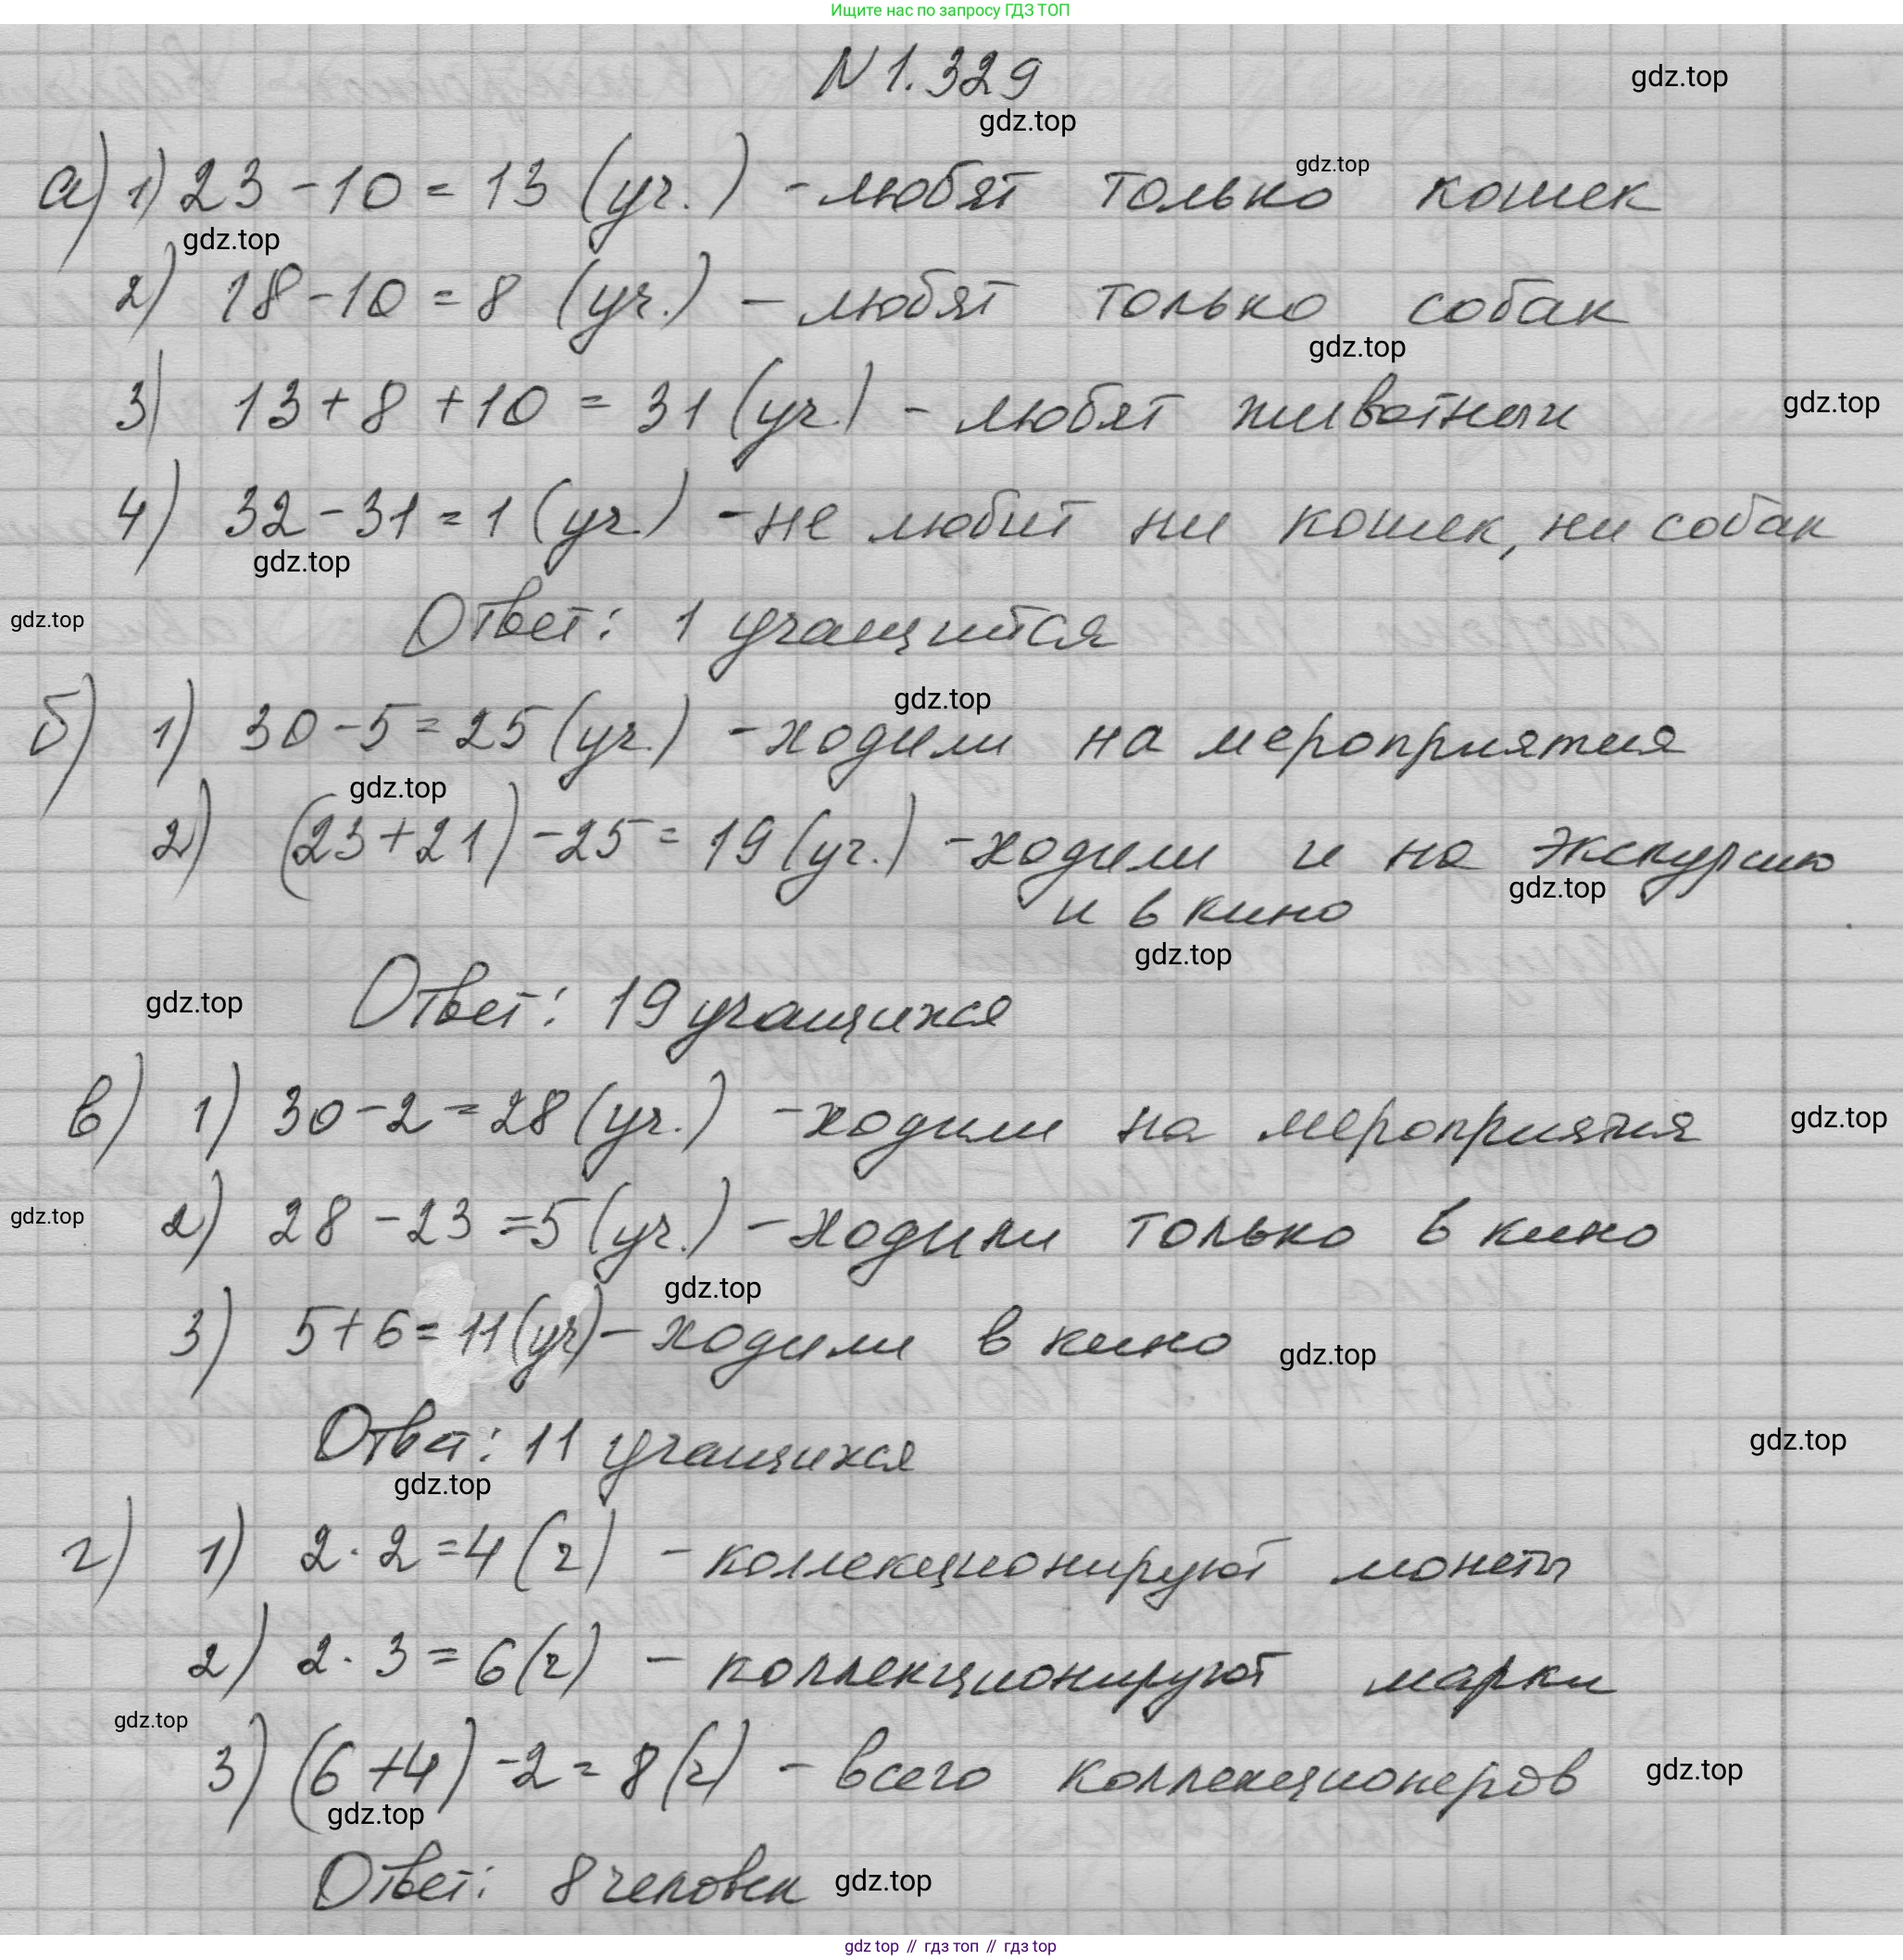 Ищите нас по запросу ГДЗ ТОП
N 1.329
gdz.top
gdz.top
gdz.top
а) 1) 23 - 10 = 13 (уч.) - любят только кошек
gdz.top
2) 18 - 10 = 8 (уч.) - любят только собак
gdz.top
3) 13 + 8 + 10 = 31 (уч.) - любят животных
gdz.top
4) 32 - 31 = 1 (уч.) - не любит ни кошек, ни собак
gdz.top
gdz.top
Ответ: 1 учащийся
gdz.top
б) 1) 30 - 5 = 25 (уч.) - ходили на мероприятия
gdz.top
2) (23 + 21) - 25 = 19 (уч.) - ходили и на экскурсию
gdz.top
и в кино
gdz.top
gdz.top
Ответ: 19 учащихся
в) 1) 30 - 2 = 28 (уч.) - ходили на мероприятия
gdz.top
gdz.top
2) 28 - 23 = 5 (уч.) - ходили только в кино
gdz.top
3) 5 + 6 = 11 (уч) - ходили в кино
gdz.top
Ответ: 11 учащихся
gdz.top
gdz.top
г) 1) 2 · 2 = 4 (ч) - коллекционируют монеты
2) 2 · 3 = 6 (ч) - коллекционируют марки
gdz.top
3) (6 + 4) - 2 = 8 (ч) - всего коллекционеров
gdz.top
gdz.top
Ответ: 8 человек
gdz.top
gdz top // гдз топ // гдз top